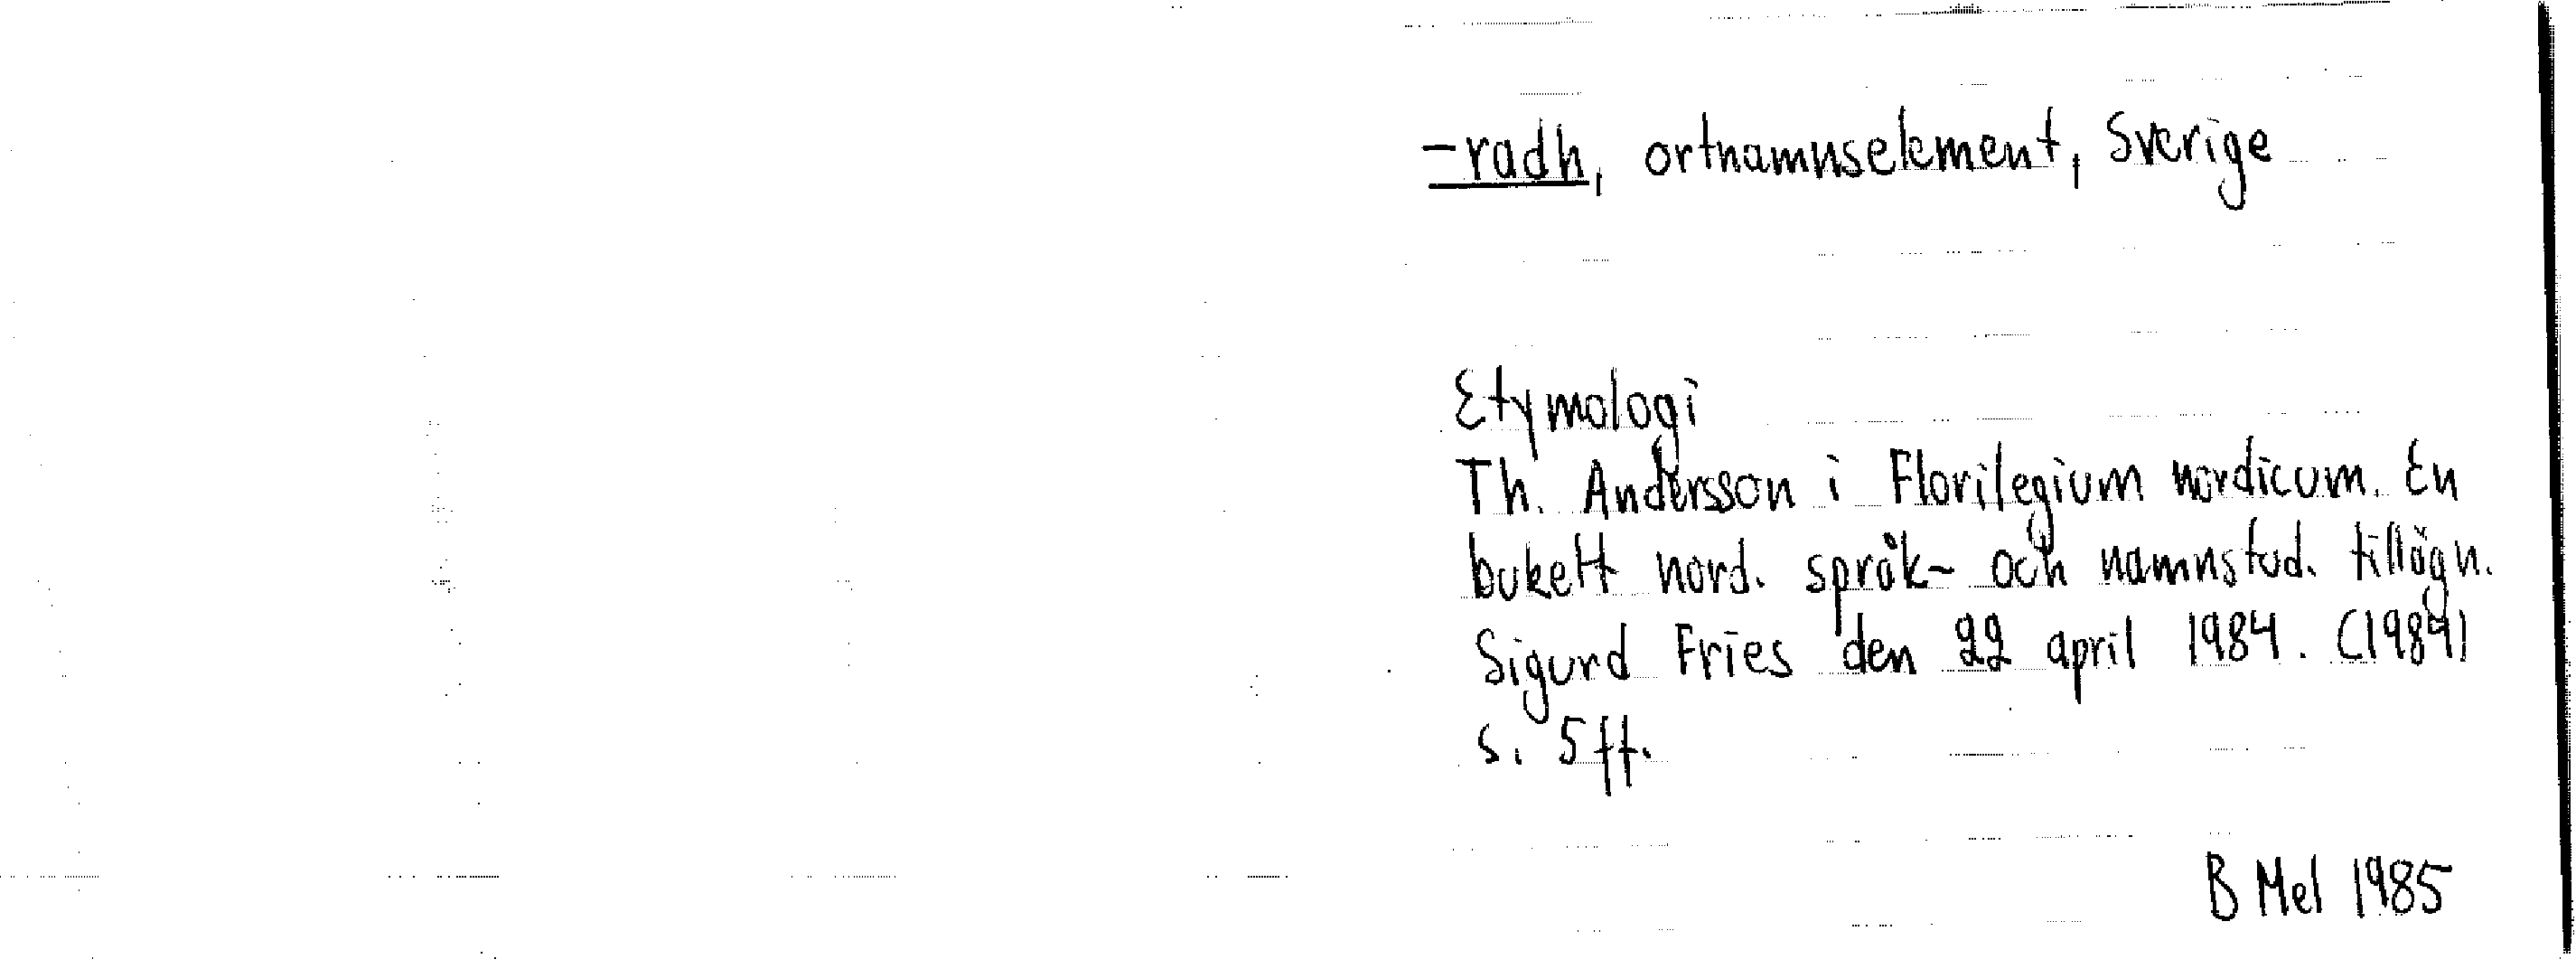 -radh, ortnamnselement, Sverige
Etymologi
Th. Andersson i Florilegium nordicum. En
bukett nord. språk- och namnstud. tillägn.
Sigurd Fries den 22 april 1984. (1984)
s. 5 ff.
B Mel 1985